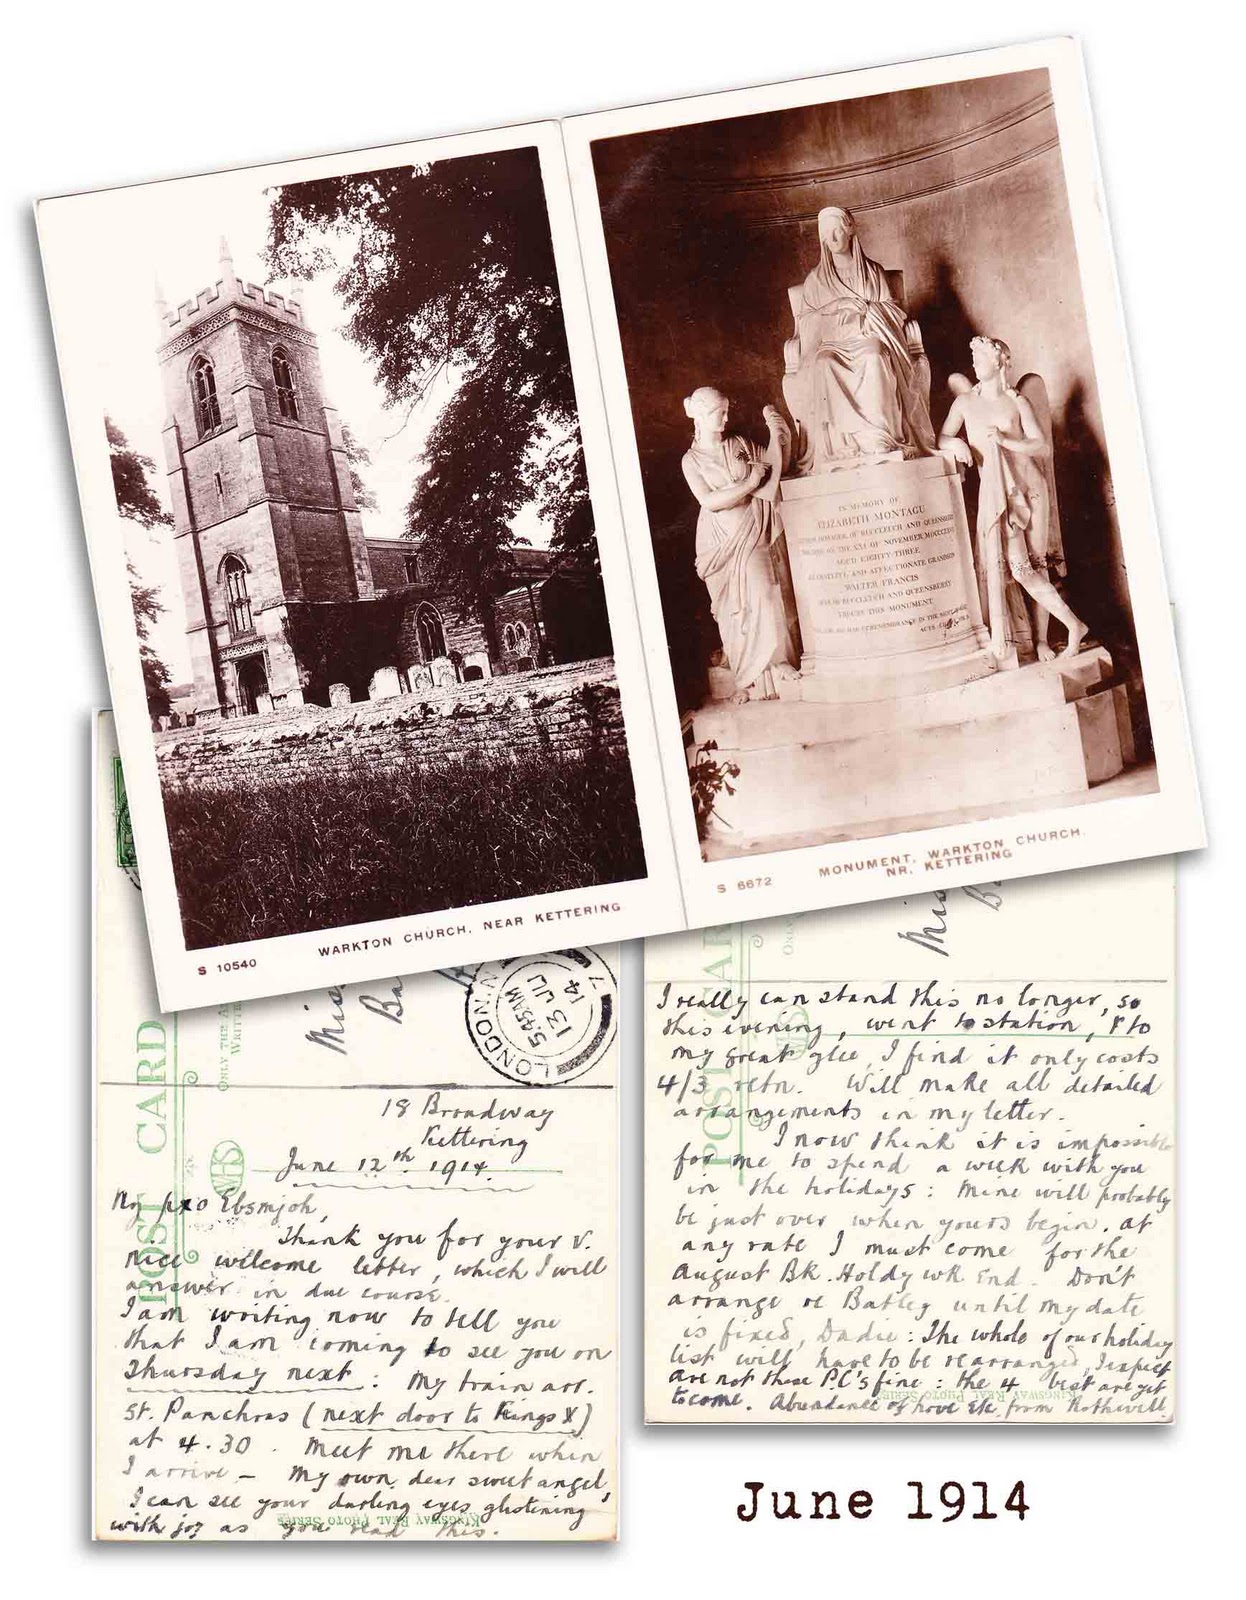 WARKTON CHURCH, NEAR KETTERING
S 10540
IN MEMORY OF
ELIZABETH MONTAGU
OF BUCCLEUCH AND QUEENSBERRY
OF NOVEMBER
AGED EIGHTY THREE
AND AFFECTIONATE GRANDSON
WALTER FRANCIS
BUCCLEUCH AND QUEENSBERRY
ERECTS THIS MONUMENT
MONUMENT, WARKTON CHURCH.
NR. KETTERING
S 6672
POST CARD
ONLY THE
Miss
Ba
LONDON.
5.45AM
13 JU
14
7
18 Broadway
Kettering
June 12th 1914.
My pxo Ebsmjoh,
Thank you for your v.
nice welcome letter, which I will
answer in due course.
I am writing now to tell you
that I am coming to see you on
Thursday next : My train arr.
St. Pancras (next door to Kings X)
at 4.30. Meet me there when
I arrive – My own dear sweet angel,
I can see your darling eyes glistening
with joy as you read this.
WHS
KINGSWAY REAL PHOTO SERIES
POST CARD
Miss
Ba
I really can stand this no longer, so
this evening, went to station, & to
my great glee, I find it only costs
4/3 retn. Will make all detailed
arrangements in my letter.
I now think it is impossible
for me to spend a week with you
in the holidays: Mine will probably
be just over when yours begin. At
any rate I must come for the
August Bk. Holdy wk End. Don't
arrange re Batley until my date
is fixed, Dadie: The whole of our holiday
list will have to be rearranged, I expect
Are not these P.C's fine: the 4 best are yet
to come. Abundance of love Etc. from Rothwell.
WHS
KINGSWAY REAL PHOTO SERIES
June 1914